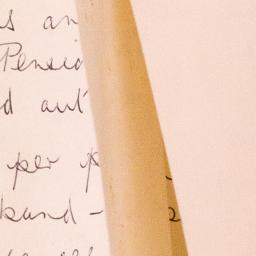 s an
Pensio
d aut
per p
band -